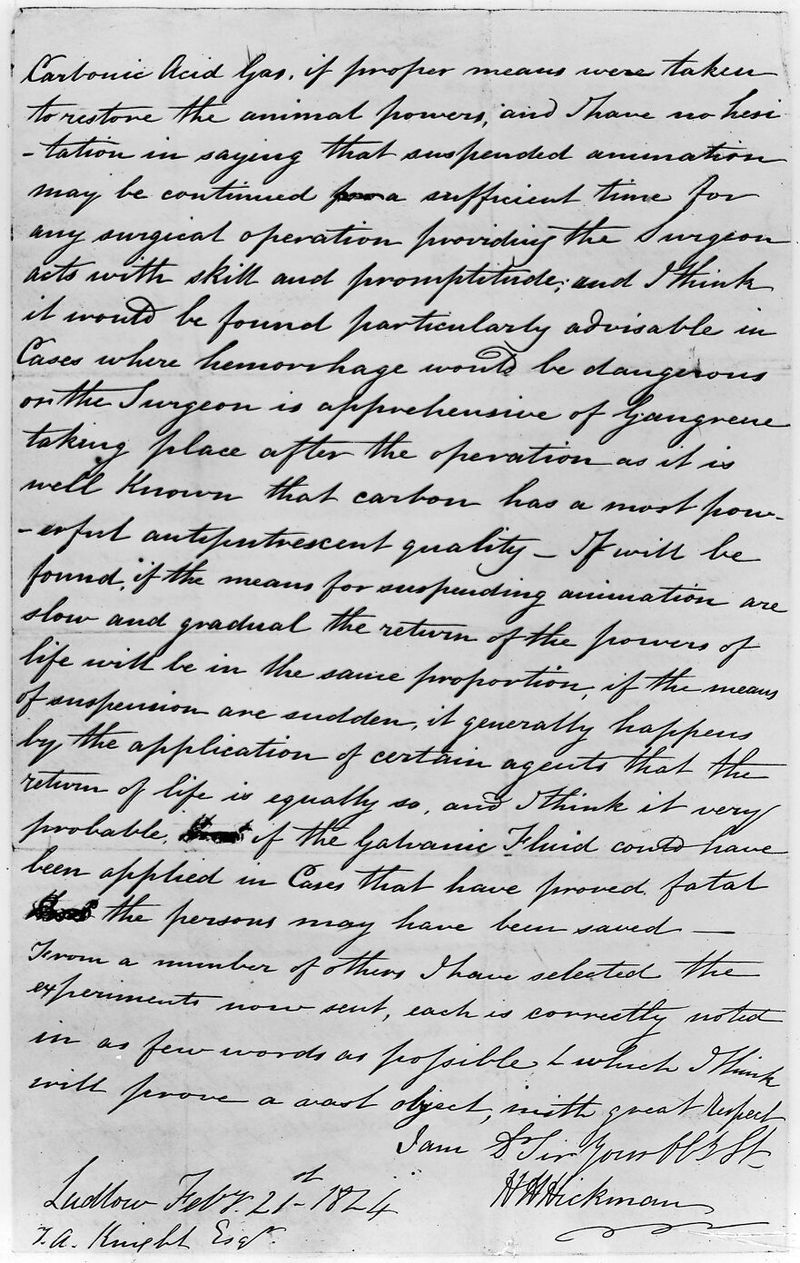 Carbonic Acid Gas, if proper means were taken
to restore the animal powers; and I have no hesi
-tation in saying that suspended animation
may be continued a sufficient time for
any surgical operation providing the Surgeon
acts with skill and promptitude; and I think
it would be found particularly advisable in
Cases where hemorrhage would be dangerous
or the Surgeon is apprehensive of Gangrene
taking place after the operation as it is
well Known that carbon has a most pow-
-erful antiputrescent quality – It will be
found, if the means for suspending animation are
slow and gradual the return of the powers of
life will be in the same proportion, if the means
of suspension are sudden, it generally happens
by the application of certain agents that the
return of life is equally so, and I think it very
probable, if the Galvanic Fluid could have
been applied in Cases that have proved fatal
the persons may have been saved —
From a number of others I have selected the
experiments now sent, each is correctly noted
in as few words as possible & which I think
will prove a vast object, with great Respect
I am Dr Sir Your Ob St
Ludlow Feby. 21st – 1824
HHHickman
T. A. Knight Esqr.